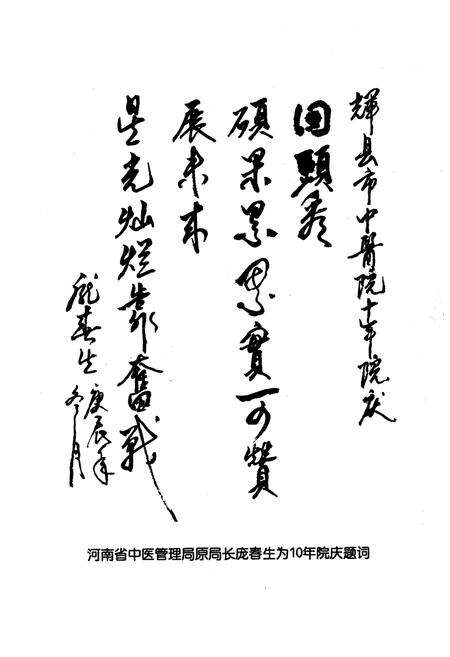 輝县市中醫院十年院庆
回顾看
碩果累累實可赞
展未来
星光灿烂靠奮战
庞春生 庚辰年
冬月
河南省中医管理局原局长庞春生为10年院庆题词